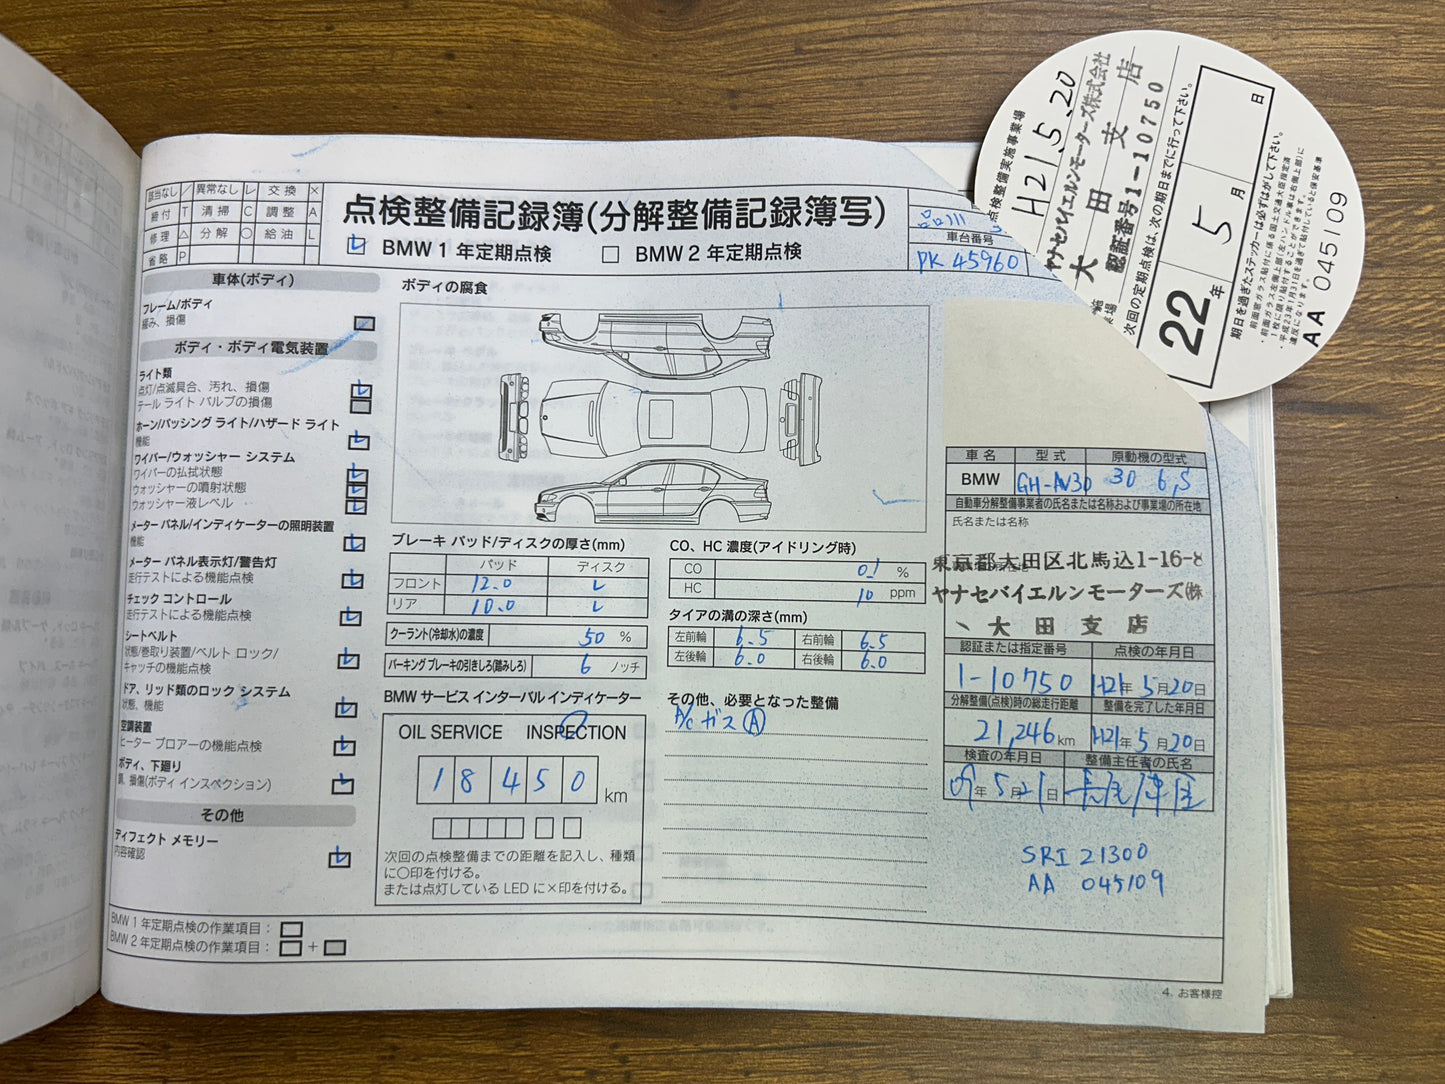 該当なし ／ 異常なし レ 交換 ×
締付 T 清掃 C 調整 A
修理 △ 分解 ○ 給油 L
省略 P
点検整備記録簿(分解整備記録簿写)
レ BMW 1 年定期点検 BMW 2 年定期点検
品川
車台番号
PK 45960
車体(ボディ)
フレーム/ボディ
緩み、損傷
ボディ・ボディ電気装置
ライト類
点灯/点滅具合、汚れ、損傷 レ
テール ライト バルブの損傷
ホーン/パッシング ライト/ハザード ライト
機能 レ
ワイパー/ウォッシャー システム
ワイパーの払拭状態 レ
ウォッシャーの噴射状態 レ
ウォッシャー液レベル レ
メーター パネル/インディケーターの照明装置
機能 レ
メーター パネル表示灯/警告灯
走行テストによる機能点検 レ
チェック コントロール
走行テストによる機能点検 レ
シートベルト
状態/巻取り装置/ベルト ロック/
キャッチの機能点検 レ
ドア、リッド類のロック システム
状態、機能 レ
空調装置
ヒーター ブロアーの機能点検 レ
ボディ、下廻り
損傷(ボディ インスペクション) レ
その他
ディフェクト メモリー
内容確認 レ
ボディの腐食
レ
ブレーキ パッド/ディスクの厚さ(mm)
パッド ディスク
フロント 12.0 レ
リア 10.0 レ
クーラント(冷却水)の濃度 50 %
パーキング ブレーキの引きしろ(踏みしろ) 6 ノッチ
BMW サービス インターバル インディケーター
OIL SERVICE INSPECTION
18450 km
次回の点検整備までの距離を記入し、種類
に○印を付ける。
または点灯している LED に×印を付ける。
CO、HC 濃度(アイドリング時)
CO 0.1 %
HC 10 ppm
タイアの溝の深さ(mm)
左前輪 6.5 右前輪 6.5
左後輪 6.0 右後輪 6.0
その他、必要となった整備
A/C ガス Ⓐ
車名 型式 原動機の型式
BMW GH-AV30 30 6,S
自動車分解整備事業者の氏名または名称および事業場の所在地
氏名または名称
東京都大田区北馬込1-16-8
ヤナセバイエルンモーターズ(株
大田支店
認証または指定番号 点検の年月日
1-10750 H21年 5月20日
分解整備(点検)時の総走行距離 整備を完了した年月日
21,246 km H21年 5月20日
検査の年月日 整備主任者の氏名
年 5月21日
SRI 21300
AA 045109
BMW 1 年定期点検の作業項目：
BMW 2 年定期点検の作業項目： +
4. お客様控
点検整備実施事業場
H21.5.20
ヤナセバイエルンモーターズ株式会社
大田支店
認証番号1-10750
次回の定期点検は、次の期日までに行って下さい。
22年 5月 日
期日を過ぎたステッカーは必ずはがして下さい。
AA 045109